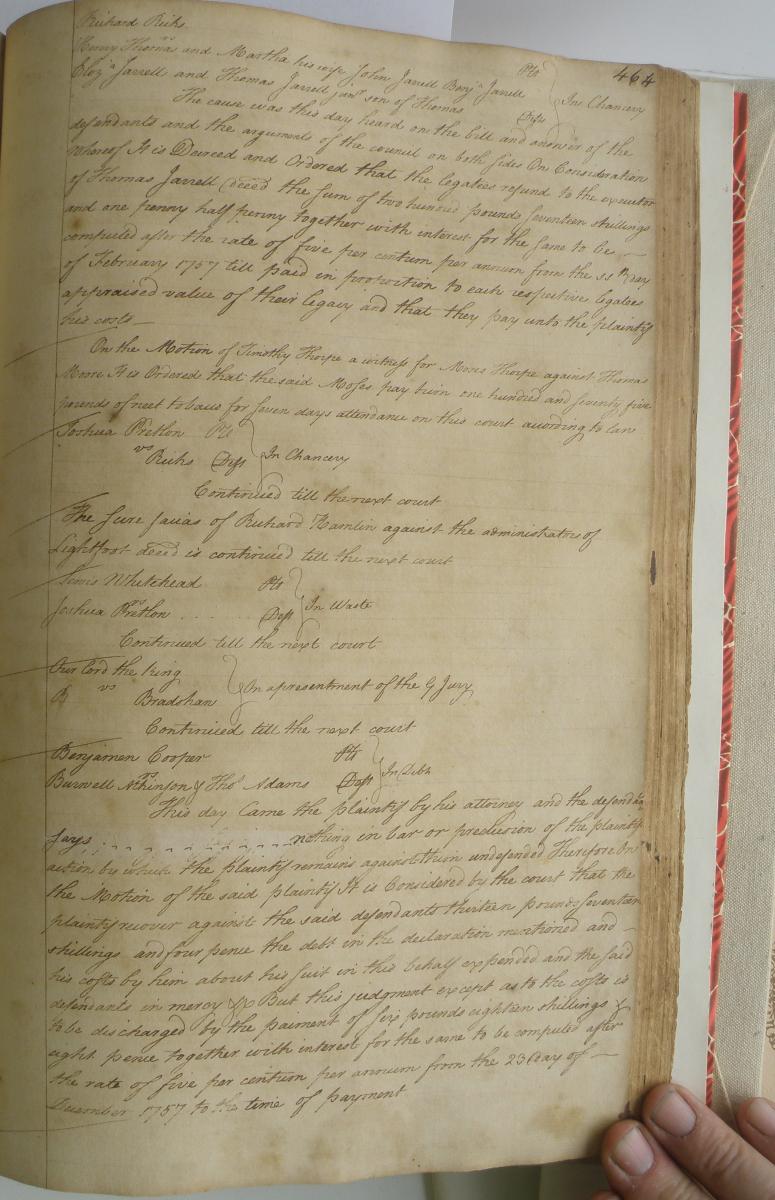 Richard Ricks
464
vs
Henry Thomas and Martha his wife John Jarrell Benjn Jarrell Plt
Eliza Jarrell and Thomas Jarrell junr son of Thomas Defts In Chancery
The cause was this day heard on the bill and answer of the
defendants and the arguments of the council on both sides On Consideration
whereof It is Decreed and Ordered that the legatees refund to the executor
of Thomas Jarrell deced the sum of two hundred pounds seventeen shillings
and one penny half penny together with interest for the same to be
computed after the rate of five per centum per annum from the day
of February 1757 till paid in proportion to each respective legatees
appraised value of their legacy and that they pay unto the plaintif
his costs
On the Motion of Timothy Thorpe a witness for Moses Thorpe against Thomas
Moore It is Ordered that the said Moses pay him one hundred and seventy five
pounds of neet tobacco for seven days attendance on this court according to law
Joshua Pretlow Plt
vs Ricks Deft In Chancery
Continued till the next court
The Scire facias of Richard Hamlin against the administrators of
Lightfoot deced is continued till the next court
Lewis Whitehead Plt
vs
Joshua Pretlow Deft In Waste
Continued till the next court
Our lord the King
B vs Bradshaw On a presentment of the G Jury
Continued till the next court
Benjamen Cooper Plt
vs
Burwell Atkinson & Thos Adams Deft In Debt
This day Came the plaintif by his attorney and the defendts
says nothing in bar or preclusion of the plaintifs
action by which the plaintif remains against them undefended Therefore On
the Motion of the said plaintif It is Considered by the court that the
plaintif recover against the said defendants thirteen pounds seventeen
shillings and four pence the debt in the declaration mentioned and
his costs by him about his suit in this behalf expended and the said
defendants in mercy &c But this judgment except as to the costs is
to be discharged by the paiment of six pounds eighteen shillings &
eight pence together with interest for the same to be computed after
the rate of five per centum per annum from the 23 day of
December 1757 to the time of payment